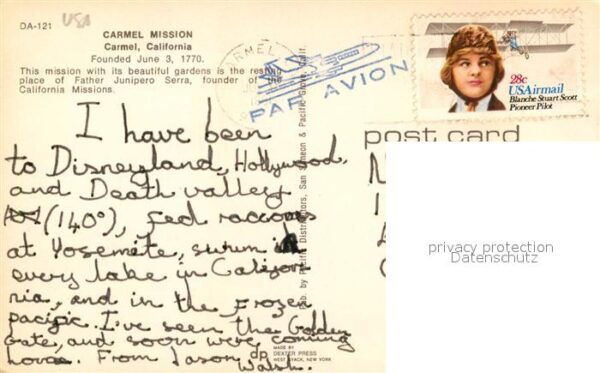 DA-121
USA
CARMEL MISSION
Carmel, California
Founded June 3, 1770.
This mission with its beautiful gardens is the resting
place of Father Junipero Serra, founder of the
California Missions.
CARMEL
PAR AVION
28c
USAirmail
Blanche Stuart Scott
Pioneer Pilot
post card
Pub. by Pacific Distributors, San Simeon & Pacific Grove, Calif.
I have been
to Disneyland, Hollywood,
and Death valley
(140°), fed raccoons
at Yosemite, swum in
every lake in Califor
nia, and in the frozen
pacific. I've seen the Golden
Gate, and soon were coming
home. From Jason
Walsh.
dp
MADE BY
DEXTER PRESS
WEST NYACK, NEW YORK
privacy protection
Datenschutz